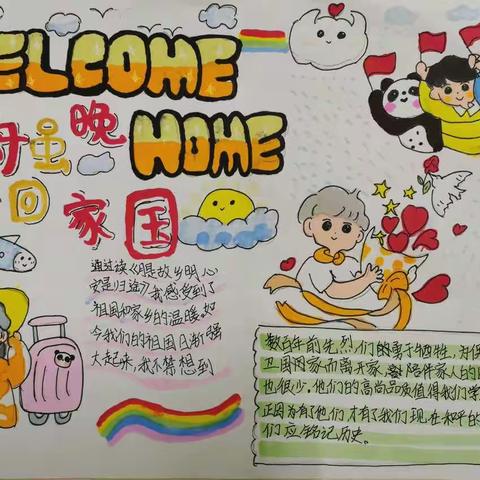 ELCOME
舟虽晚
HOME
回
家国
通过读《月是故乡明,心
安是归途》,我感受到了
祖国和家乡的温暖。如
今我们的祖国日渐强
大起来,我不禁想到
数百年前先烈,们的勇于牺牲,为保
卫国家而离开家,陪伴家人的
也很少,他们的高尚品质值得我们学
正因为有了他们,才有了我们现在和平的
们应铭记历史。